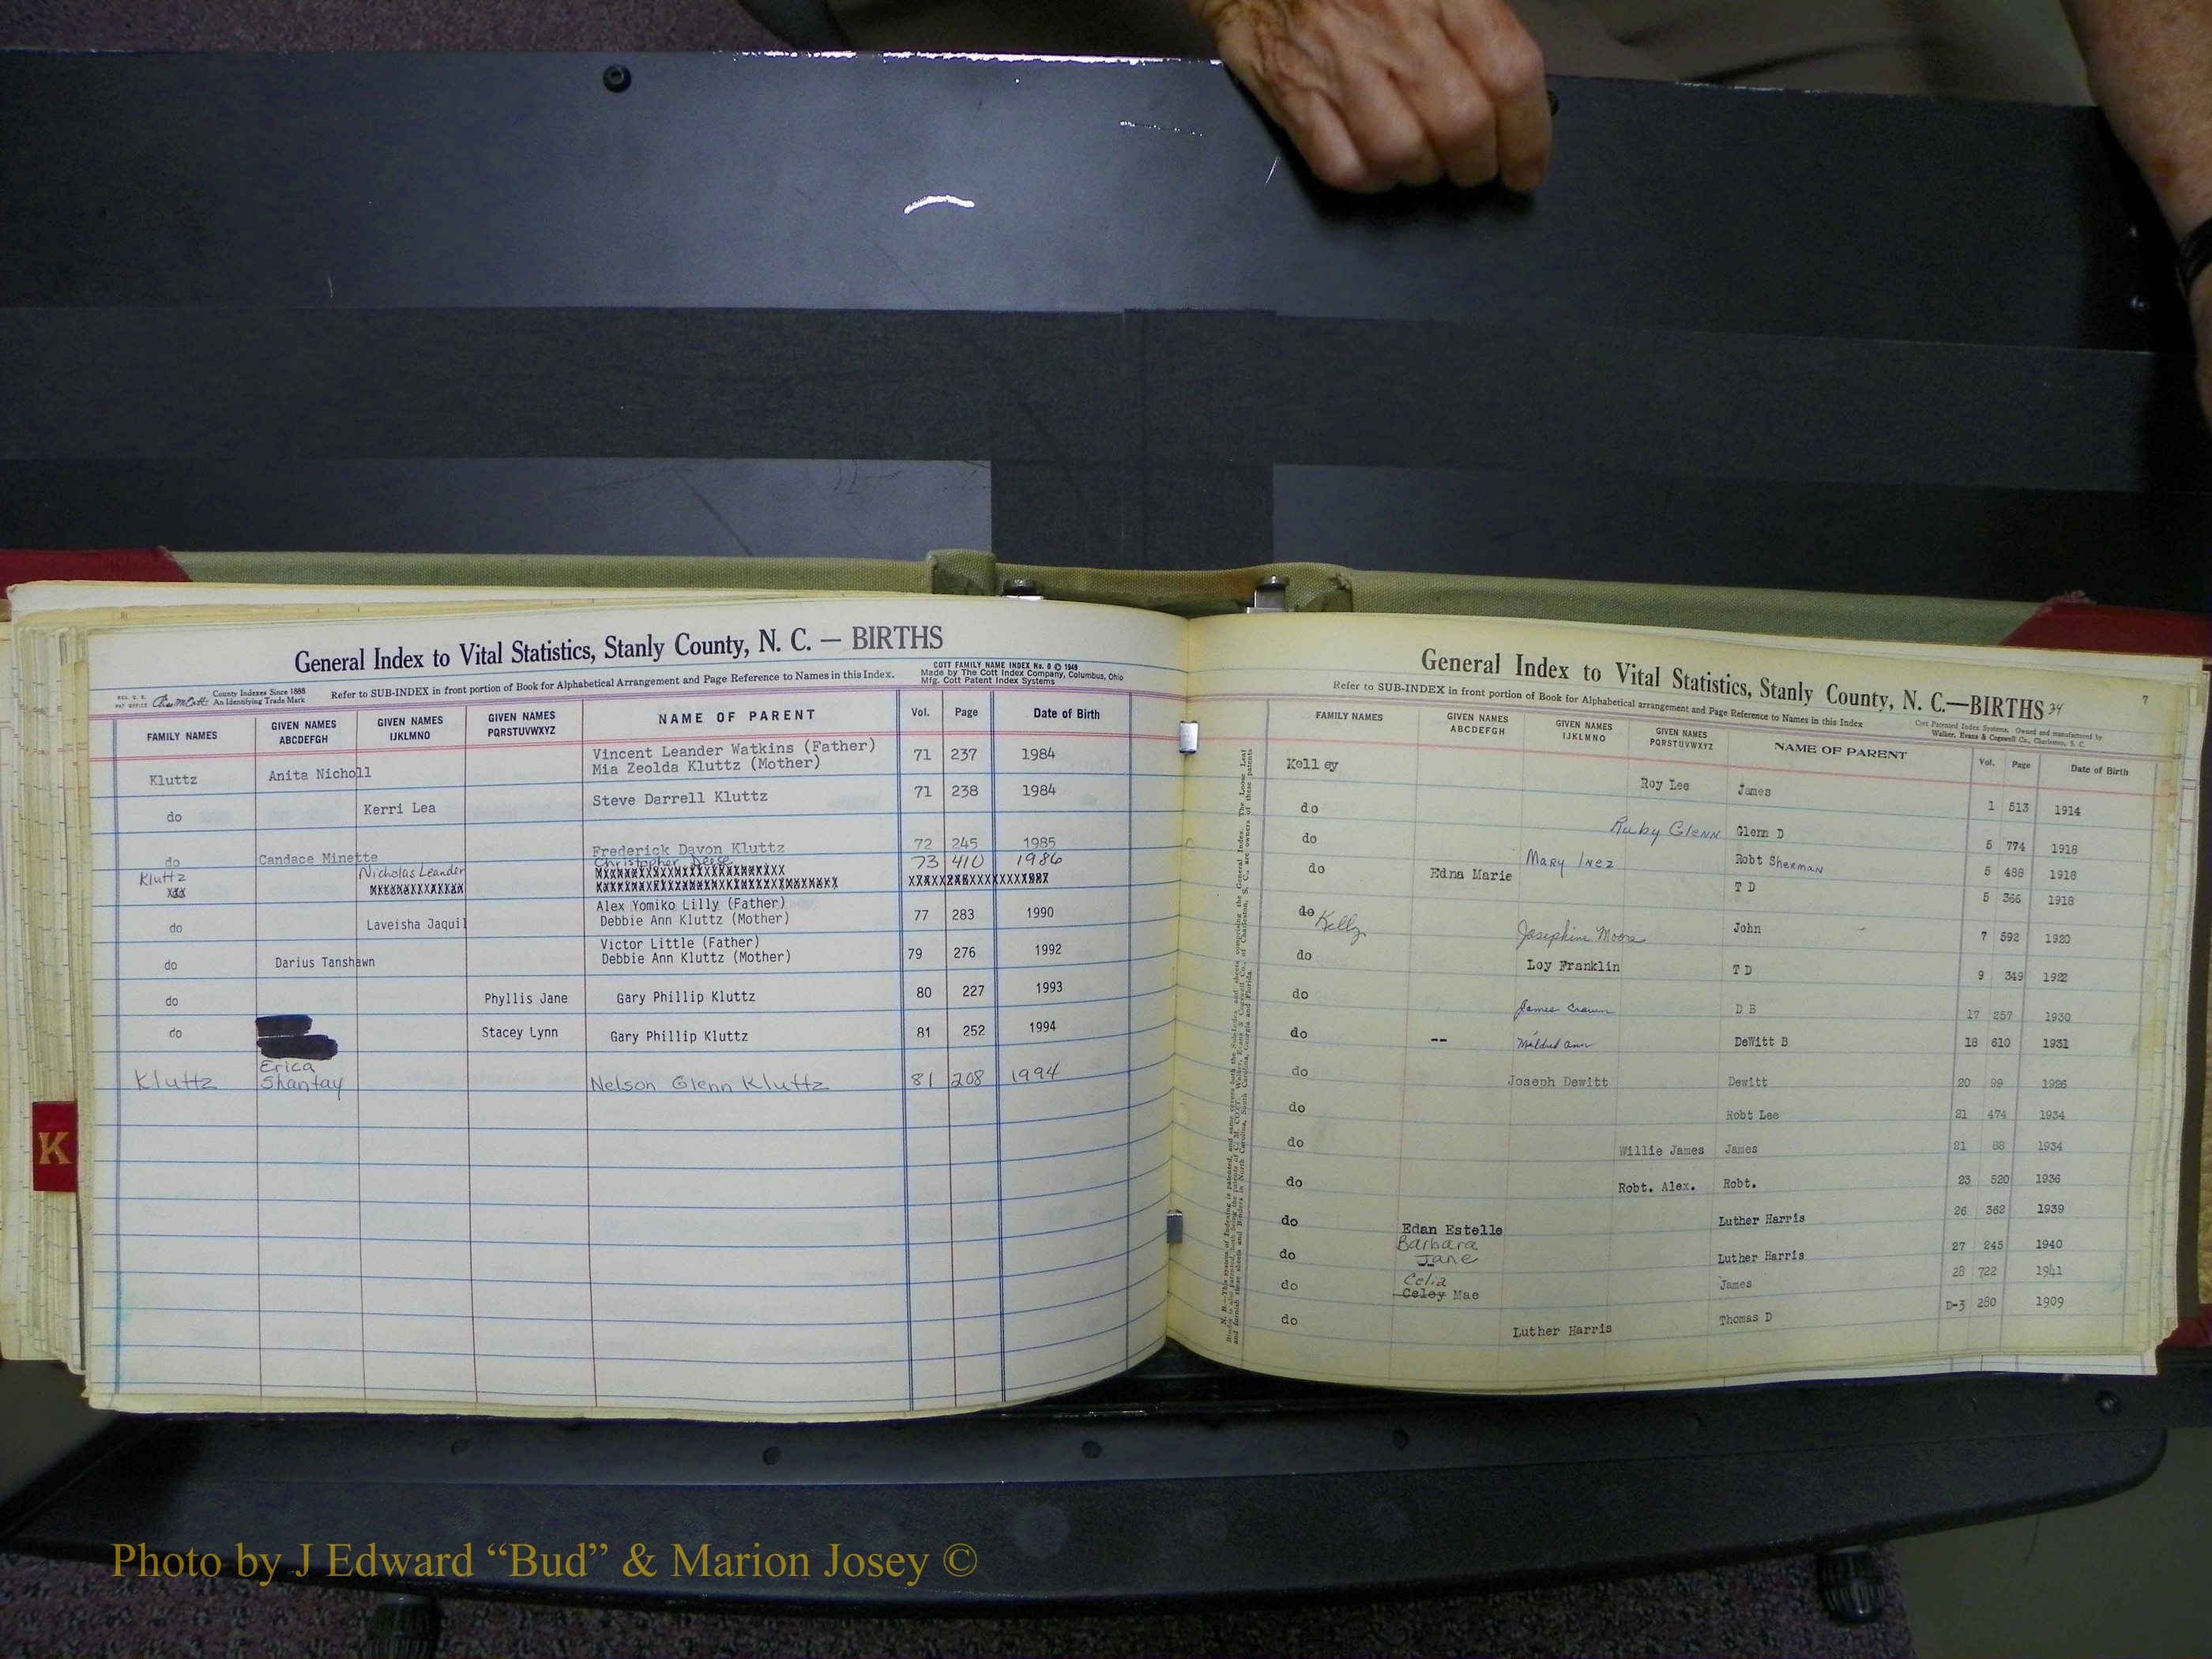 General Index to Vital Statistics, Stanly County, N. C. — BIRTHS
COTT FAMILY NAME INDEX No. 8 © 1949
Made by The Cott Index Company, Columbus, Ohio
Mfg. Cott Patent Index Systems
County Indexes Since 1888
An Identifying Trade Mark
Refer to SUB-INDEX in front portion of Book for Alphabetical Arrangement and Page Reference to Names in this Index.
FAMILY NAMES GIVEN NAMES ABCDEFGH GIVEN NAMES IJKLMNO GIVEN NAMES PQRSTUVWXYZ NAME OF PARENT Vol. Page Date of Birth
Vincent Leander Watkins (Father)
Kluttz Anita Nicholl Mia Zeolda Kluttz (Mother) 71 237 1984
do Kerri Lea Steve Darrell Kluttz 71 238 1984
do Candace Minette Frederick Davon Kluttz 72 245 1985
Kluttz Nicholas Leander Christopher Deese 73 410 1986
XXX
Alex Yomiko Lilly (Father)
do Laveisha Jaquil Debbie Ann Kluttz (Mother) 77 283 1990
Victor Little (Father)
do Darius Tanshawn Debbie Ann Kluttz (Mother) 79 276 1992
do Phyllis Jane Gary Phillip Kluttz 80 227 1993
do Stacey Lynn Gary Phillip Kluttz 81 252 1994
Erica
Kluttz Shantay Nelson Glenn Kluttz 81 208 1994
K
General Index to Vital Statistics, Stanly County, N. C.—BIRTHS 34
7
Refer to SUB-INDEX in front portion of Book for Alphabetical arrangement and Page Reference to Names in this Index
Cott Patented Index Systems, Owned and manufactured by
Walker, Evans & Cogswell Co., Charleston, S. C.
FAMILY NAMES GIVEN NAMES ABCDEFGH GIVEN NAMES IJKLMNO GIVEN NAMES PQRSTUVWXYZ NAME OF PARENT Vol. Page Date of Birth
Kelley Roy Lee James 1 513 1914
do Ruby Glenn Glenn D 5 774 1918
do Mary Inez Robt Sherman 5 488 1918
do Edna Marie T D 5 366 1918
do Kelly Josephine Moore John 7 592 1920
do Loy Franklin T D 9 349 1922
do James D B 17 257 1930
do -- Mildred Ann DeWitt B 18 610 1931
do Joseph Dewitt Dewitt 20 99 1926
do Robt Lee 21 474 1934
do Willie James James 21 88 1934
do Robt. Alex. Robt. 23 520 1936
do Edan Estelle Luther Harris 26 362 1939
do Barbara Jane Luther Harris 27 245 1940
Celia
do Celey Mae James 28 722 1941
do Luther Harris Thomas D D-3 280 1909
Photo by J Edward “Bud” & Marion Josey ©